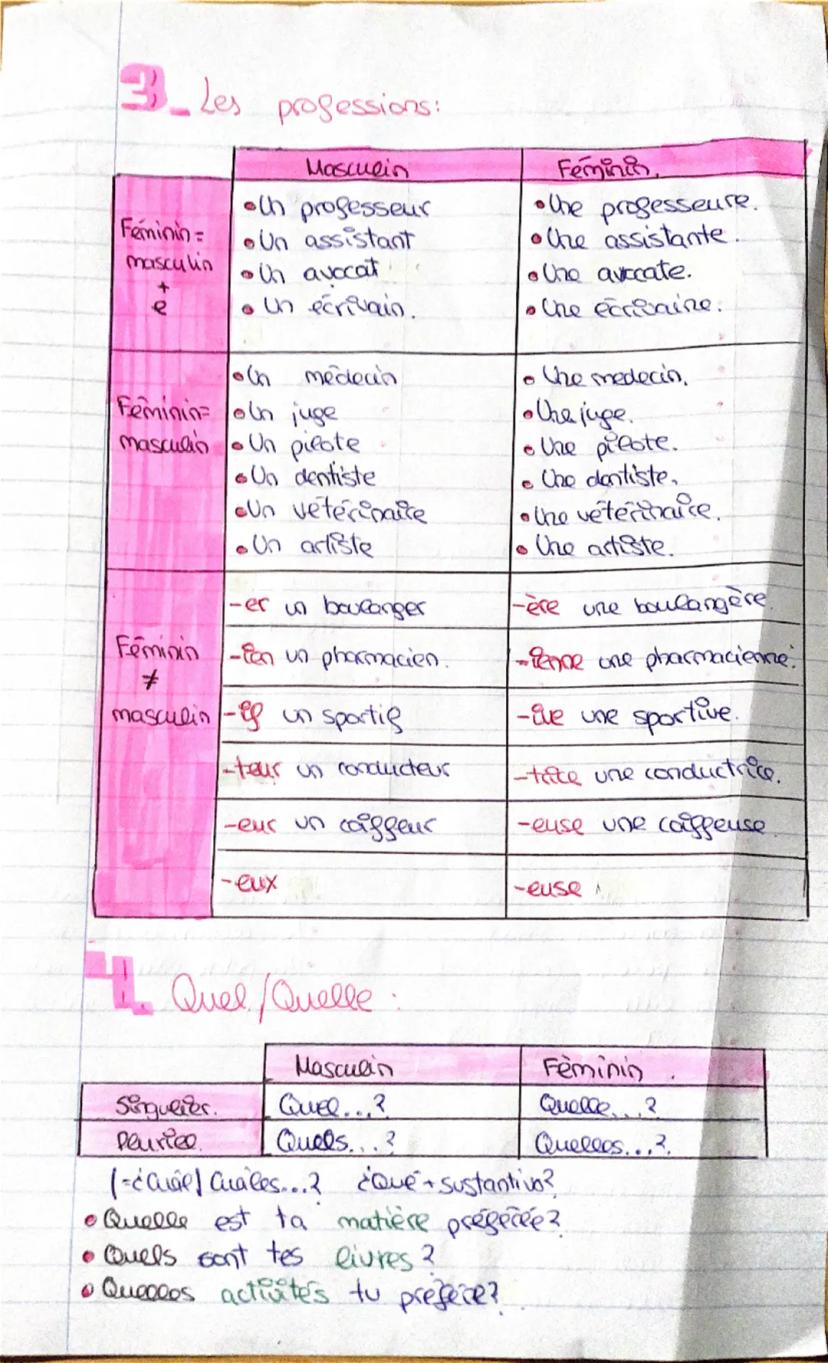 3_ Les professions:
Masculin Féminin.
Féminin = masculin + e
• Un professeur • Une professeure.
• Un assistant • Une assistante.
• Un avocat • Une avocate.
• Un écrivain. • Une écrivaine.
Féminin= masculin
• Un médecin • Une medecin.
• Un juge • Une juge.
• Un pilote • Une pilote.
• Un dentiste • Une dentiste.
• Un vétérinaire • Une vétérinaire.
• Un artiste • Une artiste.
Féminin ≠ masculin
-er un boulanger -ère une boulangère.
-ien un pharmacien. -ienne une pharmacienne.
-if un sportif -ive une sportive.
-teur un conducteur -trice une conductrice.
-eur un coiffeur -euse une coiffeuse.
-eux -euse
4. Quel/Quelle:
Masculin Féminin.
Singulier. Quel...? Quelle...?
Pluriel. Quels...? Quelles...?
(=¿Cuál/Cuáles...? ¿Qué + sustantivo?
• Quelle est ta matière préférée?
• Quels sont tes livres?
• Quelles activités tu préfère?